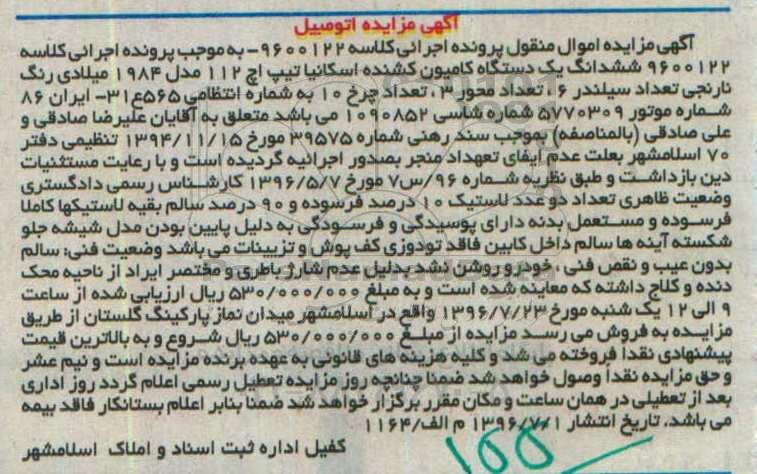 آگهی مزایده اتومبیل
آگهی مزایده اموال منقول پرونده اجرائی کلاسه ۹۶۰۰۱۲۲- به موجب پرونده اجرائی کلاسه
۹۶۰۰۱۲۲ ششدانگ یک دستگاه کامیون کشنده اسکانیا تیپ اچ ۱۱۲ مدل ۱۹۸۴ میلادی رنگ
نارنجی تعداد سیلندر ۶، تعداد محور ۳، تعداد چرخ ۱۰ به شماره انتظامی ۵۶۵ع۳۱- ایران ۸۶
شماره موتور ۵۷۷۰۳۰۹ شماره شاسی ۱۰۹۰۸۵۲ می باشد متعلق به آقایان علیرضا صادقی و
علی صادقی (بالمناصفه) بموجب سند رهنی شماره ۳۹۵۷۵ مورخ ۱۳۹۴/۱۱/۱۵ تنظیمی دفتر
۷۰ اسلامشهر بعلت عدم ایفای تعهداد منجر بصدور اجرائیه گردیده است و با رعایت مستثنیات
دین بازداشت و طبق نظریه شماره ۹۶/س۷ مورخ ۱۳۹۶/۵/۷ کارشناس رسمی دادگستری
وضعیت ظاهری تعداد دو عدد لاستیک ۱۰ درصد فرسوده و ۹۰ درصد سالم بقیه لاستیکها کاملا
فرسوده و مستعمل بدنه دارای پوسیدگی و فرسودگی به دلیل پایین بودن مدل شیشه جلو
شکسته آینه ها سالم داخل کابین فاقد تودوزی کف پوش و تزیینات می باشد وضعیت فنی: سالم
بدون عیب و نقص فنی ، خودرو روشن نشد بدلیل عدم شارژ باطری و مختصر ایراد از ناحیه محک
دنده و کلاج داشته که معاینه شده است و به مبلغ ۵۳۰/۰۰۰/۰۰۰ ریال ارزیابی شده از ساعت
۹ الی ۱۲ یک شنبه مورخ ۱۳۹۶/۷/۲۳ واقع در اسلامشهر میدان نماز پارکینگ گلستان از طریق
مزایده به فروش می رسد مزایده از مبلغ ۵۳۰/۰۰۰/۰۰۰ ریال شروع و به بالاترین قیمت
پیشنهادی نقدا فروخته می شد و کلیه هزینه های قانونی به عهده برنده مزایده است و نیم عشر
و حق مزایده نقداً وصول خواهد شد ضمنا چنانچه روز مزایده تعطیل رسمی اعلام گردد روز اداری
بعد از تعطیلی در همان ساعت و مکان مقرر برگزار خواهد شد ضمنا بنابر اعلام بستانکار فاقد بیمه
می باشد. تاریخ انتشار ۱۳۹۶/۷/۱ م الف/۱۱۶۴
کفیل اداره ثبت اسناد و املاک اسلامشهر